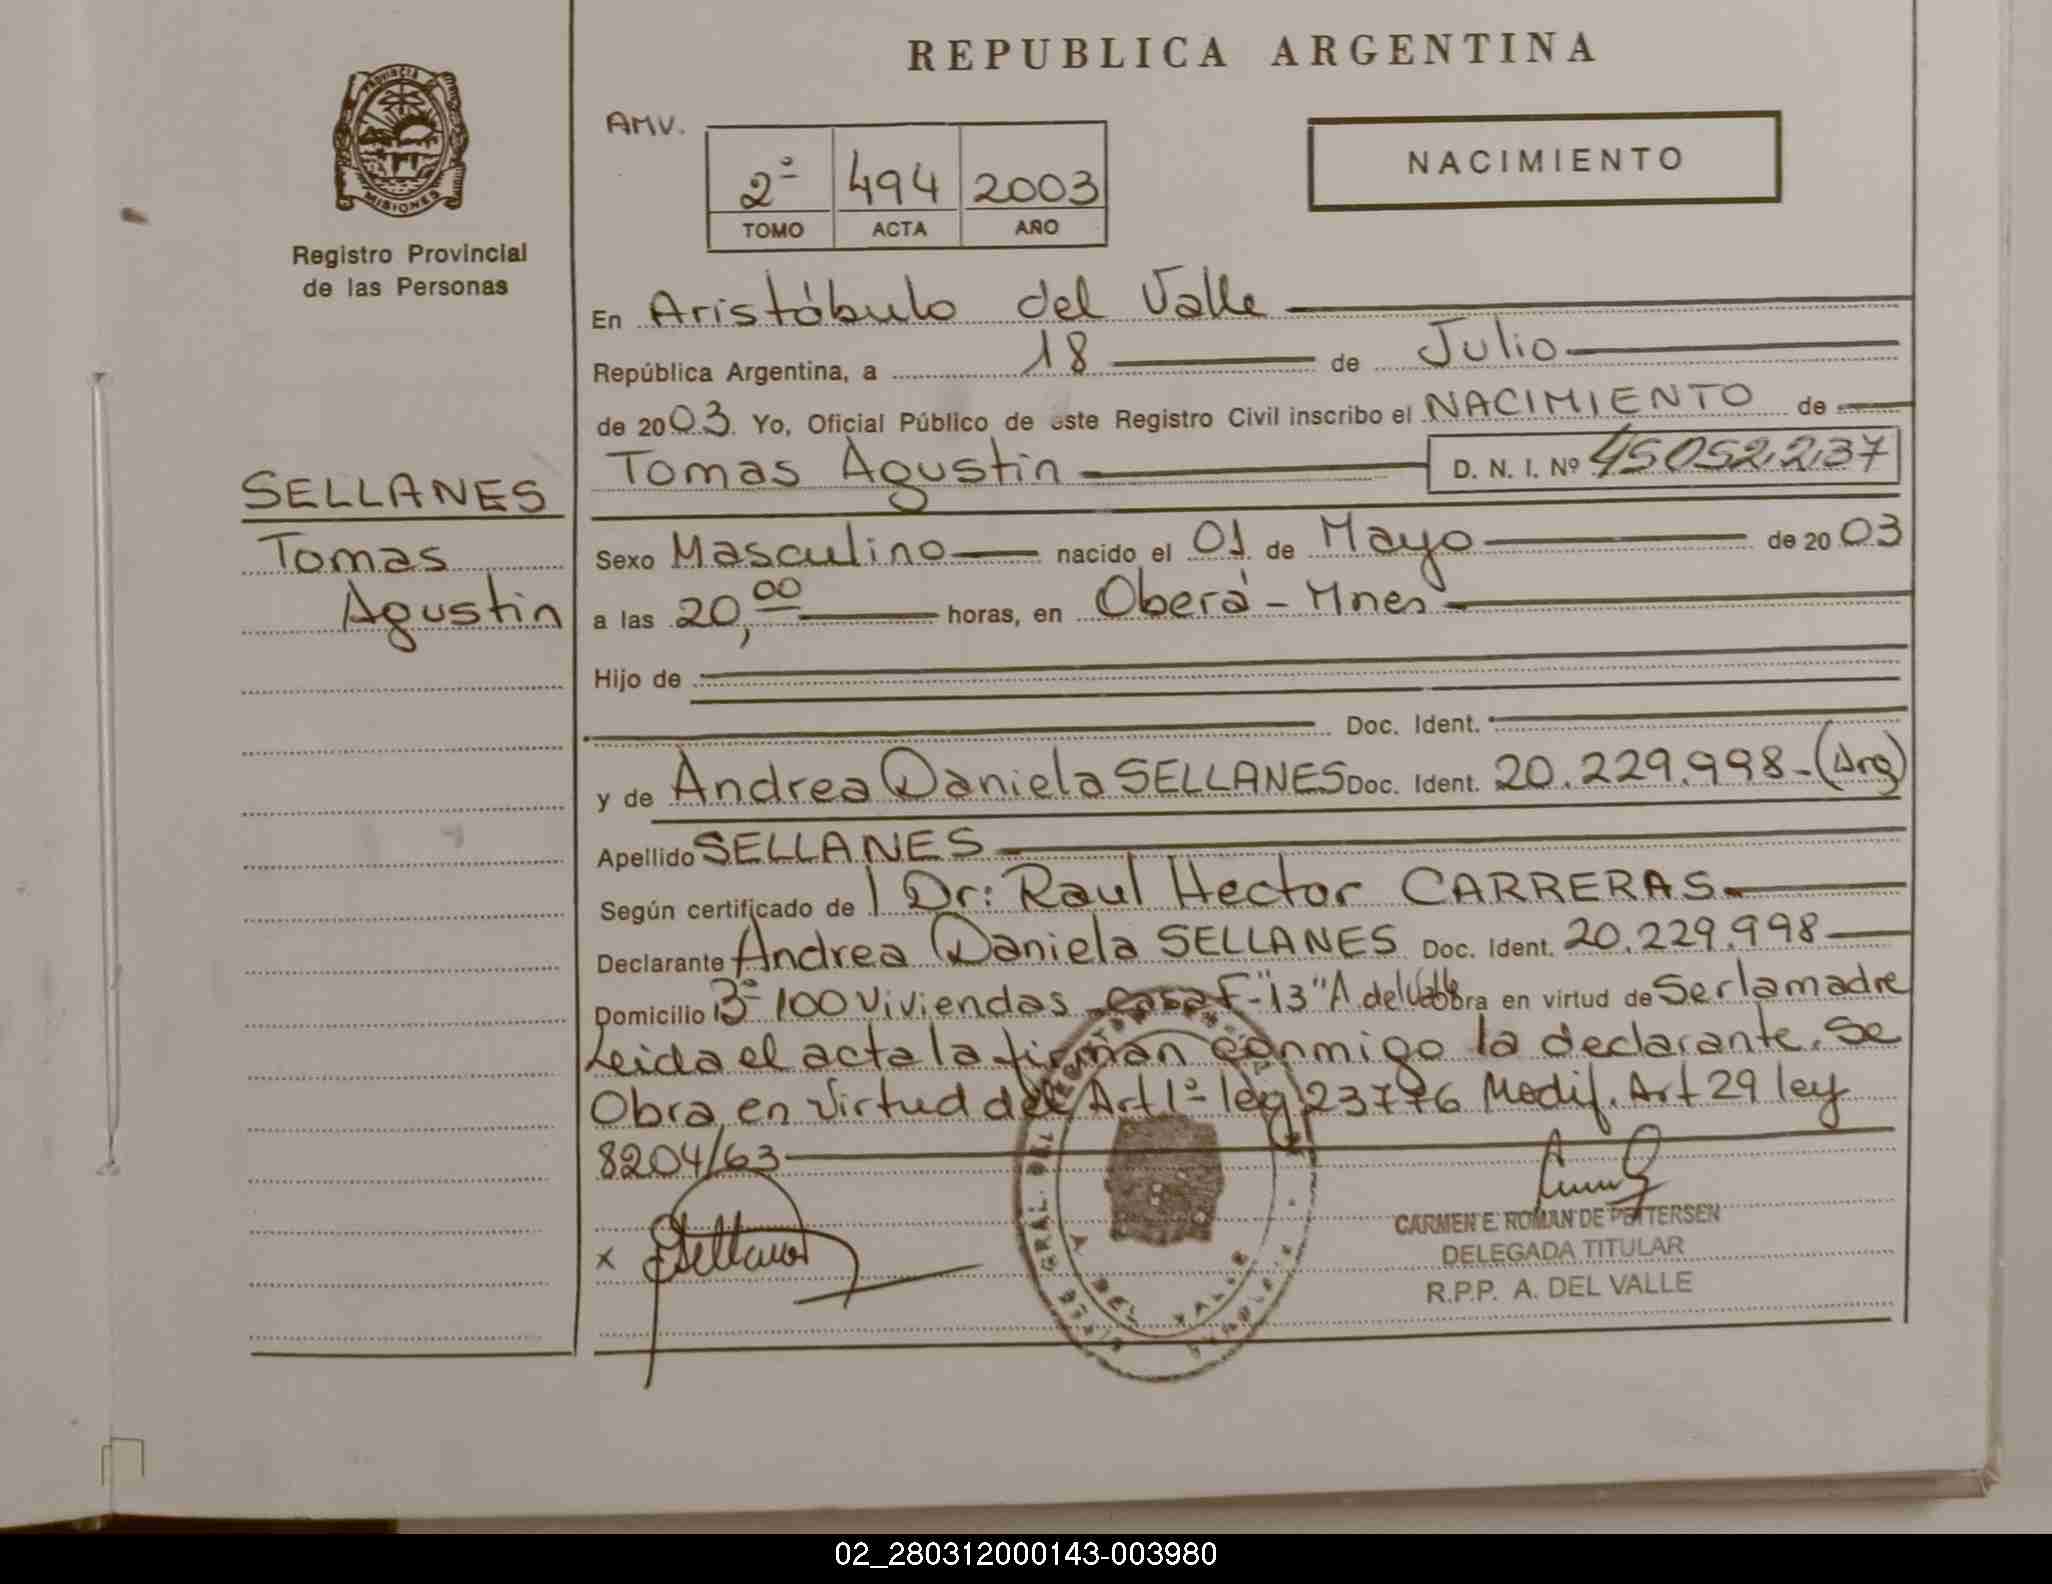 REPUBLICA ARGENTINA
PROVINCIA DE
MISIONES
Registro Provincial
de las Personas
AMV.
2º 494 2003
TOMO ACTA AÑO
NACIMIENTO
En Aristóbulo del Valle
República Argentina, a 18 de Julio
de 2003. Yo, Oficial Público de este Registro Civil inscribo el NACIMIENTO de
Tomas Agustin D. N. I. Nº 45052237
SELLANES
Tomas
Agustin
Sexo Masculino nacido el 01 de Mayo de 2003
a las 20,00 horas, en Oberá - Mnes
Hijo de
Doc. Ident.
y de Andrea Daniela SELLANES Doc. Ident. 20.229.998-(Arg)
Apellido SELLANES
Según certificado de l Dr: Raul Hector CARRERAS.
Declarante Andrea Daniela SELLANES Doc. Ident. 20.229.998
Domicilio Bº 100 Viviendas casa F-"13" A. del Valle obra en virtud de Ser la madre
Leida el acta la firman conmigo la declarante. Se
Obra en virtud del Art 1º ley 23776 Modif. Art 29 ley
8204/63
x
CARMEN E. ROMAN DE PETTERSEN
DELEGADA TITULAR
R.P.P. A. DEL VALLE
A. DEL VALLE
02_280312000143-003980